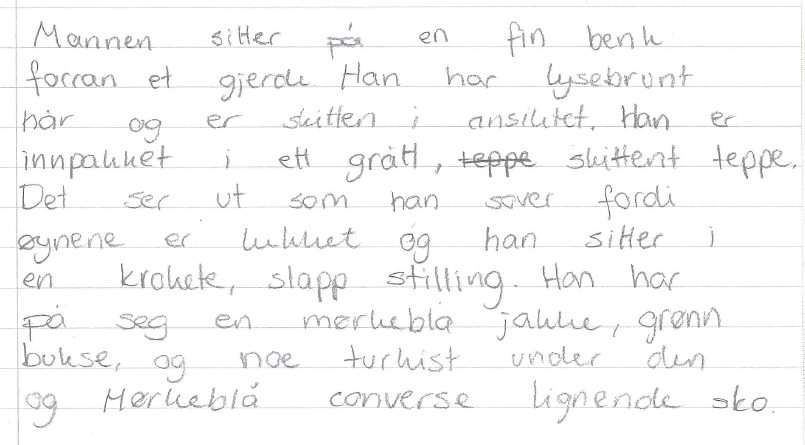 Mannen sitter på en fin benk
forran et gjerde. Han har lysebrunt
hår og er skitten i ansiktet. Han er
innpakket i ett grått, teppe skittent teppe.
Det ser ut som han sover fordi
øynene er lukket og han sitter i
en krokete, slapp stilling. Han har
på seg en mørkeblå jakke, grønn
bukse, og noe turkist under den
og Mørkeblå converse lignende sko.